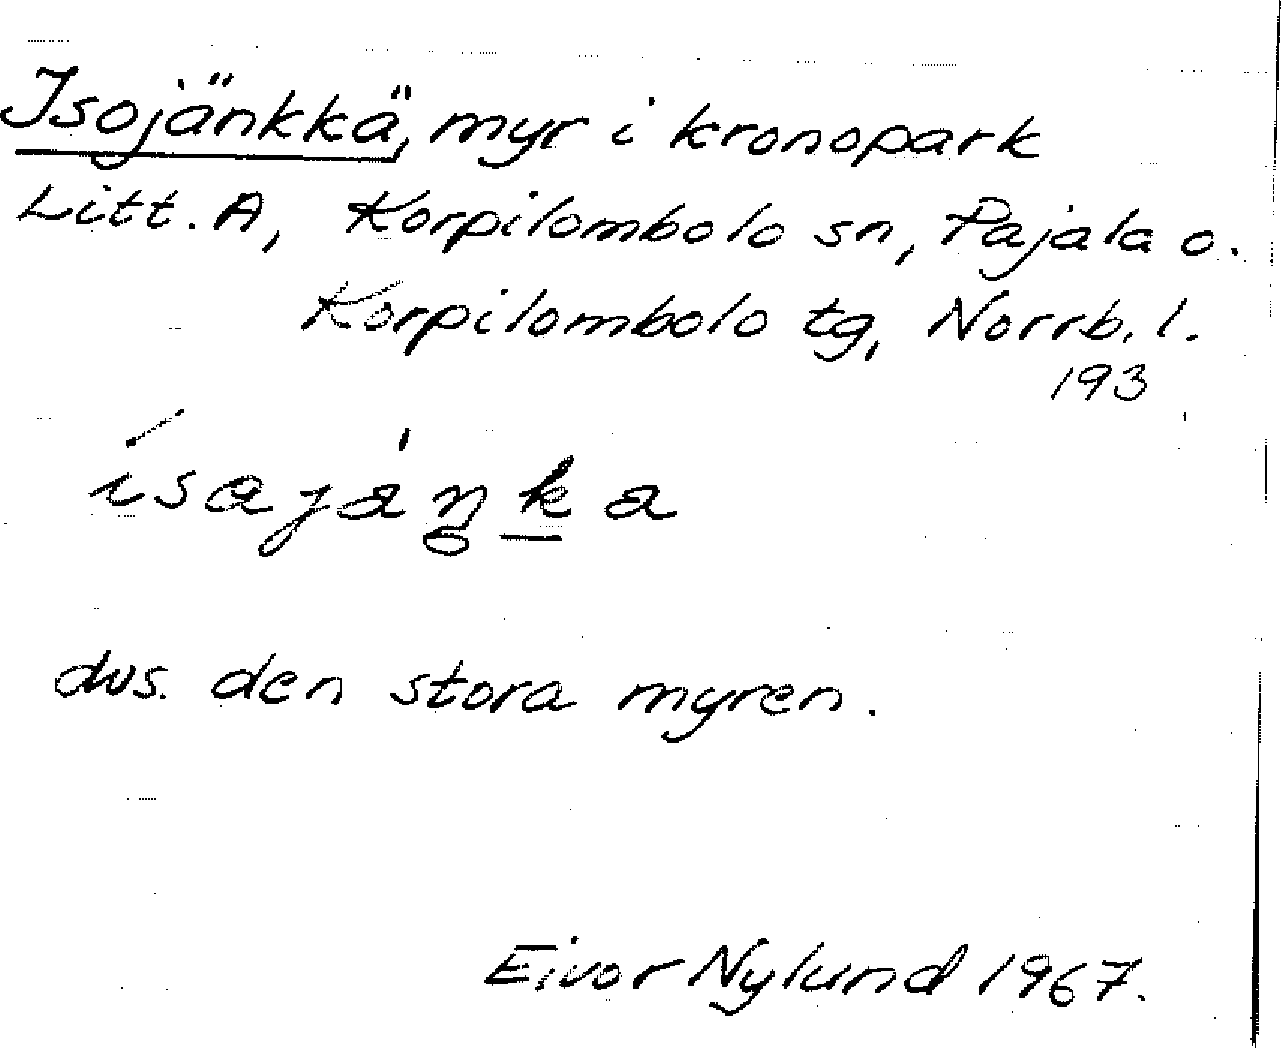 Isojänkkä, myr i kronopark
Litt. A, Korpilombolo sn, Pajala o.
Korpilombolo tg, Norrb. l.
193
dvs. den stora myren.
Eivor Nylund 1967.